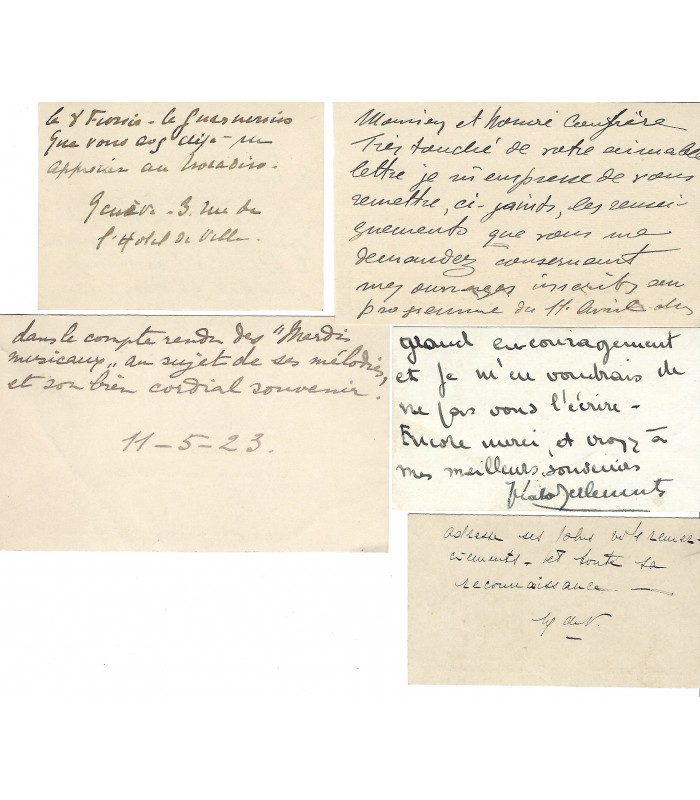 le 8
que vous avez déjà
apprécier au
Genève - 3. rue de
l'Hotel de Ville.
Monsieur et honoré Confrère
Très touché de votre aimable
lettre je m'empresse de vous
remettre, ci-joints, les rensei-
gnements que vous me
demandez concernant
mes ouvrages inscrits au
programme du 11 Avril
dans le compte rendu des "Mardis
musicaux" au sujet de ses mélodies,
et son bien cordial souvenir.
11-5-23.
grand encouragement
et je m'en voudrais de
ne pas vous l'écrire -
Encore merci, et croyez à
mes meilleurs souvenirs
adresse ses plus vifs remer-
ciements - et toute sa
reconnaissance —
de V.